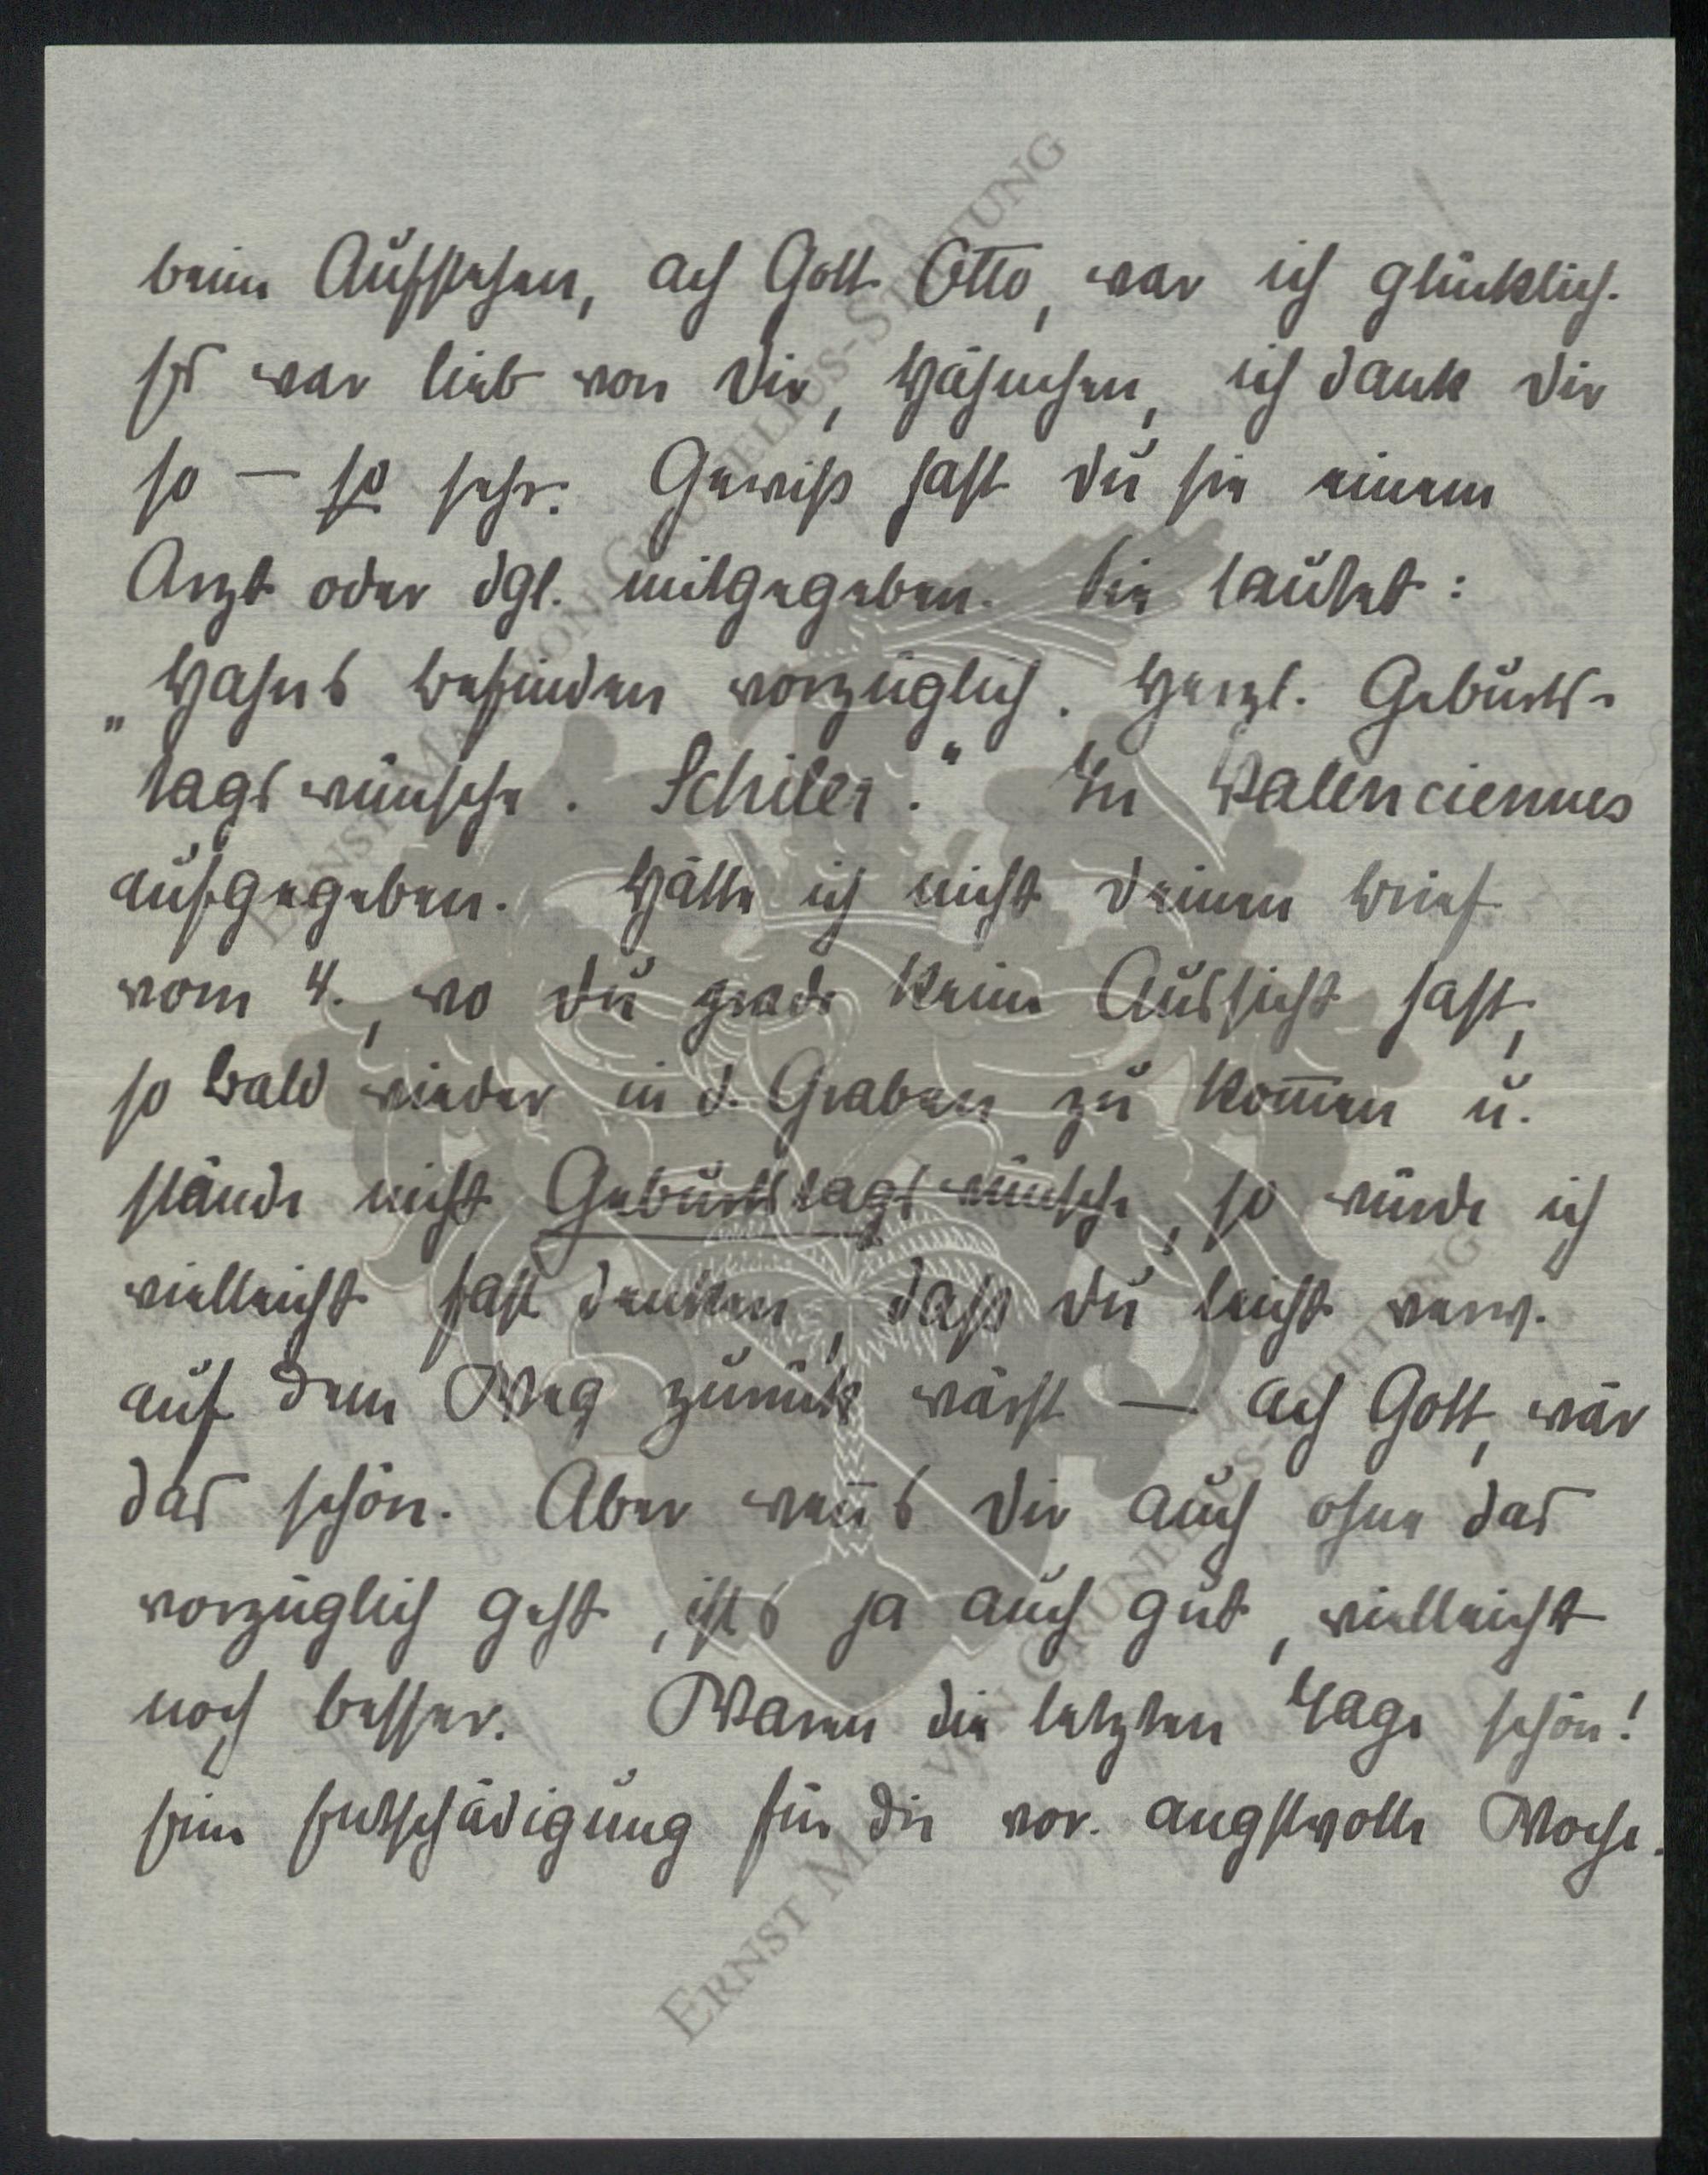 beim Aufstehen, ach Gott Otto, war ich glücklich.
Es war lieb von Dir, Hähnchen, ich dank Dir
so — so sehr. Gewiß hast Du sie einem
Arzt oder dgl. mitgegeben. Sie lautet:
„Hahns Befinden vorzüglich. Herzl. Geburts-
tagswünsche. Schiler." In Valenciennes
aufgegeben. Hätte ich nicht Deinen Brief
vom 4., wo Du grade keine Aussicht hast,
so bald wieder in d. Graben zu kom̅en u.
stände nicht Geburtstagswünsche, so würde ich
vielleicht fast denken, daß Du leicht verw.
auf dem Weg zurück wärst — ach Gott, wär
das schön. Aber wen̅s Dir auch ohne das
vorzüglich geht, ists ja auch gut, vielleicht
noch besser. Waren die letzten Tage schön!
Eine Entschädigung für die vor. angstvolle Woche.
ERNST MAX VON GRUNELIUS-STIFTUNG
ERNST MAX VON GRUNELIUS-STIFTUNG